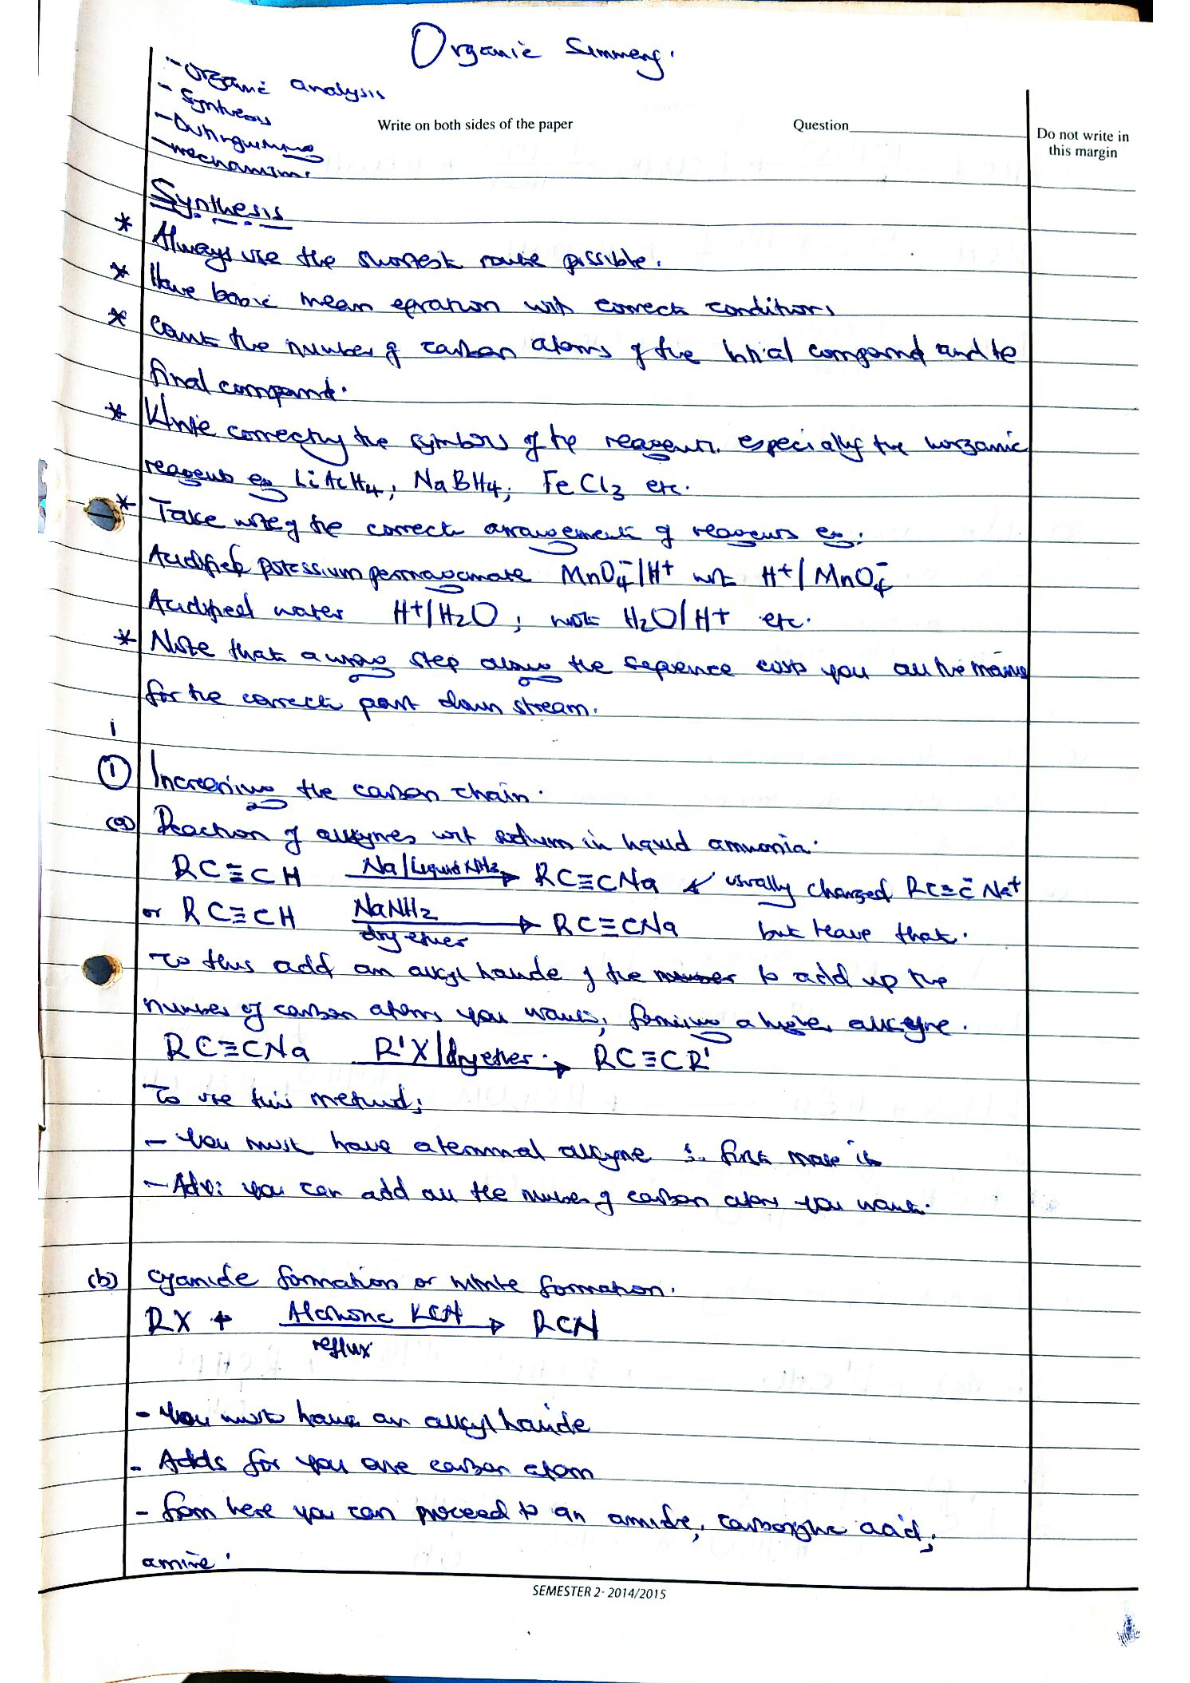 Organic Summary.
- Organic analysis
- Synthesis
- Distinguishing
- mechanisms
Write on both sides of the paper
Question
Do not write in
this margin
Synthesis
* Always use the shortest route possible.
* Have basic mean equation with correct conditions
* Count the number of carbon atoms of the initial compound and the
final compound.
* Write correctly the symbols of the reagents especially the inorganic
reagents eg LiAlH4, NaBH4, FeCl3 etc.
* Take note of the correct arrangement of reagents eg:
Acidified potassium permanganate MnO4⁻/H+ not H+/MnO4⁻
Acidified water H+/H2O ; not H2O/H+ etc.
* Note that a wrong step along the sequence costs you all the marks
for the correct part down stream.
i
① Increasing the carbon chain.
(a) Reaction of alkynes with sodium in liquid ammonia.
RC≡CH Na/liquid NH3 → RC≡CNa usually charged RC≡C̄ Na+
or RC≡CH NaNH2 → RC≡CNa but leave that.
dry ether
To this add an alkyl halide of the number to add up the
number of carbon atoms you want, forming a higher alkyne.
RC≡CNa R'X/dry ether → RC≡CR'
To use this method;
- You must have a terminal alkyne ∴ first make it
- Adv: you can add all the number of carbon atoms you want.
(b) Cyanide formation or nitrile formation.
RX + Alcoholic KCN → RCN
reflux
- You must have an alkyl halide
- Adds for you one carbon atom
- from here you can proceed to an amide, carboxylic acid,
amine.
SEMESTER 2- 2014/2015